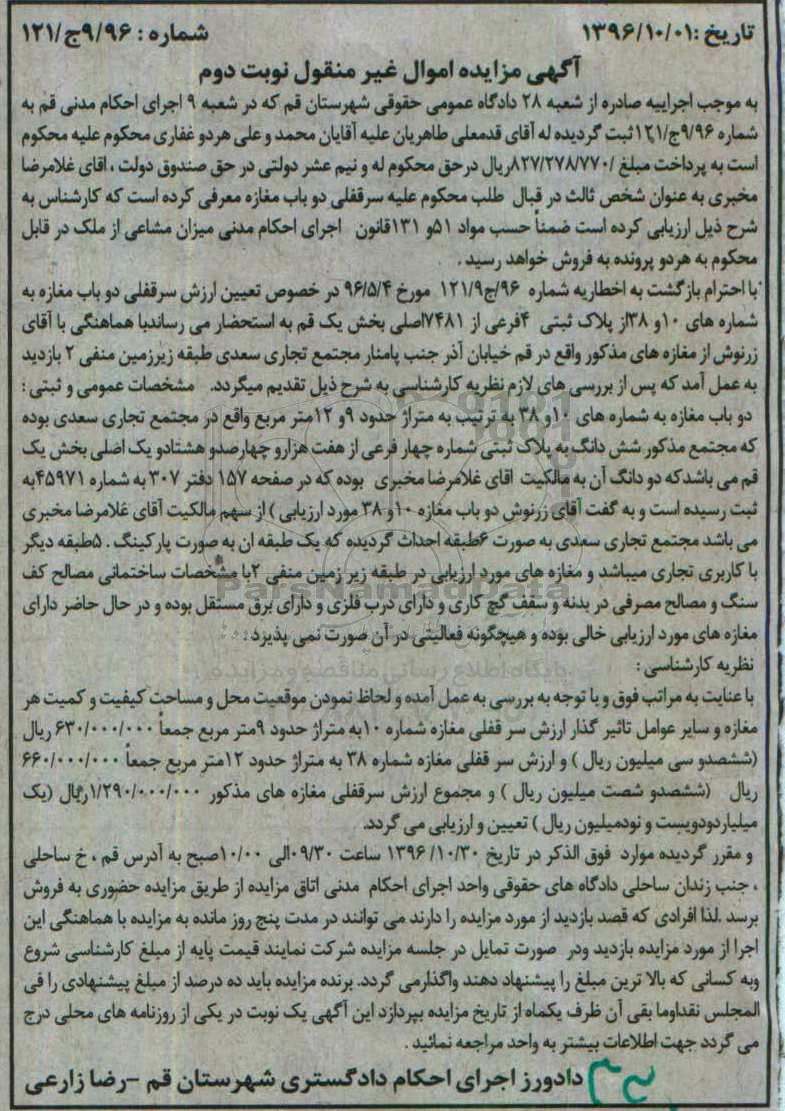 تاریخ :۱۳۹۶/۱۰/۰۱ شماره : ۹/۹۶ج/۱۲۱
آگهی مزایده اموال غیر منقول نوبت دوم
به موجب اجراییه صادره از شعبه ۲۸ دادگاه عمومی حقوقی شهرستان قم که در شعبه ۹ اجرای احکام مدنی قم به
شماره ۹/۹۶ج/۱۲۱ثبت گردیده له آقای قدمعلی طاهریان علیه آقایان محمد و علی هردو غفاری محکوم علیه محکوم
است به پرداخت مبلغ /۸۲۷/۲۷۸/۷۷۰ریال درحق محکوم له و نیم عشر دولتی در حق صندوق دولت ، اقای غلامرضا
مخبری به عنوان شخص ثالث در قبال طلب محکوم علیه سرقفلی دو باب مغازه معرفی کرده است که کارشناس به
شرح ذیل ارزیابی کرده است ضمناً حسب مواد ۵۱و ۱۳۱قانون اجرای احکام مدنی میزان مشاعی از ملک در قابل
محکوم به هردو پرونده به فروش خواهد رسید .
با احترام بازگشت به اخطاریه شماره ۹۶/ج۱۲۱/۹ مورخ ۹۶/۵/۴ در خصوص تعیین ارزش سرقفلی دو باب مغازه به
شماره های ۱۰و ۳۸از پلاک ثبتی ۴فرعی از ۷۴۸۱اصلی بخش یک قم به استحضار می رساندبا هماهنگی با آقای
زرنوش از مغازه های مذکور واقع در قم خیابان آذر جنب پامنار مجتمع تجاری سعدی طبقه زیرزمین منفی ۲ بازدید
به عمل آمد که پس از بررسی های لازم نظریه کارشناسی به شرح ذیل تقدیم میگردد. مشخصات عمومی و ثبتی :
دو باب مغازه به شماره های ۱۰و ۳۸ به ترتیب به متراژ حدود ۹و ۱۲متر مربع واقع در مجتمع تجاری سعدی بوده
که مجتمع مذکور شش دانگ به پلاک ثبتی شماره چهار فرعی از هفت هزارو چهارصدو هشتادو یک اصلی بخش یک
قم می باشدکه دو دانگ آن به مالکیت اقای غلامرضا مخبری بوده که در صفحه ۱۵۷ دفتر ۳۰۷ به شماره ۴۵۹۷۱به
ثبت رسیده است و به گفت آقای زرنوش دو باب مغازه ۱۰و ۳۸ مورد ارزیابی ) از سهم مالکیت آقای غلامرضا مخبری
می باشد مجتمع تجاری سعدی به صورت ۶طبقه احداث گردیده که یک طبقه ان به صورت پارکینگ . ۵طبقه دیگر
با کاربری تجاری میباشد و مغازه های مورد ارزیابی در طبقه زیر زمین منفی ۲با مشخصات ساختمانی مصالح کف
سنگ و مصالح مصرفی در بدنه و سقف گچ کاری و دارای درب فلزی و دارای برق مستقل بوده و در حال حاضر دارای
مغازه های مورد ارزیابی خالی بوده و هیچگونه فعالیتی در آن صورت نمی پذیرد .
نظریه کارشناسی :
با عنایت به مراتب فوق و با توجه به بررسی به عمل آمده و لحاظ نمودن موقعیت محل و مساحت کیفیت و کمیت هر
مغازه و سایر عوامل تاثیر گذار ارزش سر قفلی مغازه شماره ۱۰به متراژ حدود ۹متر مربع جمعاً ۶۳۰/۰۰۰/۰۰۰ ریال
(ششصدو سی میلیون ریال ) و ارزش سر قفلی مغازه شماره ۳۸ به متراژ حدود ۱۲متر مربع جمعاً ۶۶۰/۰۰۰/۰۰۰
ریال (ششصدو شصت میلیون ریال ) و مجموع ارزش سرقفلی مغازه های مذکور ۱/۲۹۰/۰۰۰/۰۰۰ریال (یک
میلیاردودویست و نودمیلیون ریال ) تعیین و ارزیابی می گردد.
و مقرر گردیده موارد فوق الذکر در تاریخ ۱۳۹۶/۱۰/۳۰ ساعت ۰۹/۳۰الی ۱۰/۰۰صبح به آدرس قم ، خ ساحلی
، جنب زندان ساحلی دادگاه های حقوقی واحد اجرای احکام مدنی اتاق مزایده از طریق مزایده حضوری به فروش
برسد .لذا افرادی که قصد بازدید از مورد مزایده را دارند می توانند در مدت پنج روز مانده به مزایده با هماهنگی این
اجرا از مورد مزایده بازدید ودر صورت تمایل در جلسه مزایده شرکت نمایند قیمت پایه از مبلغ کارشناسی شروع
وبه کسانی که بالا ترین مبلغ را پیشنهاد دهند واگذارمی گردد. برنده مزایده باید ده درصد از مبلغ پیشنهادی را فی
المجلس نقداوما بقی آن ظرف یکماه از تاریخ مزایده بپردازد این آگهی یک نوبت در یکی از روزنامه های محلی درج
می گردد جهت اطلاعات بیشتر به واحد مراجعه نمائید .
دادورز اجرای احکام دادگستری شهرستان قم -رضا زارعی
ParsNamadData
پایگاه اطلاع رسانی مناقصه و مزایده